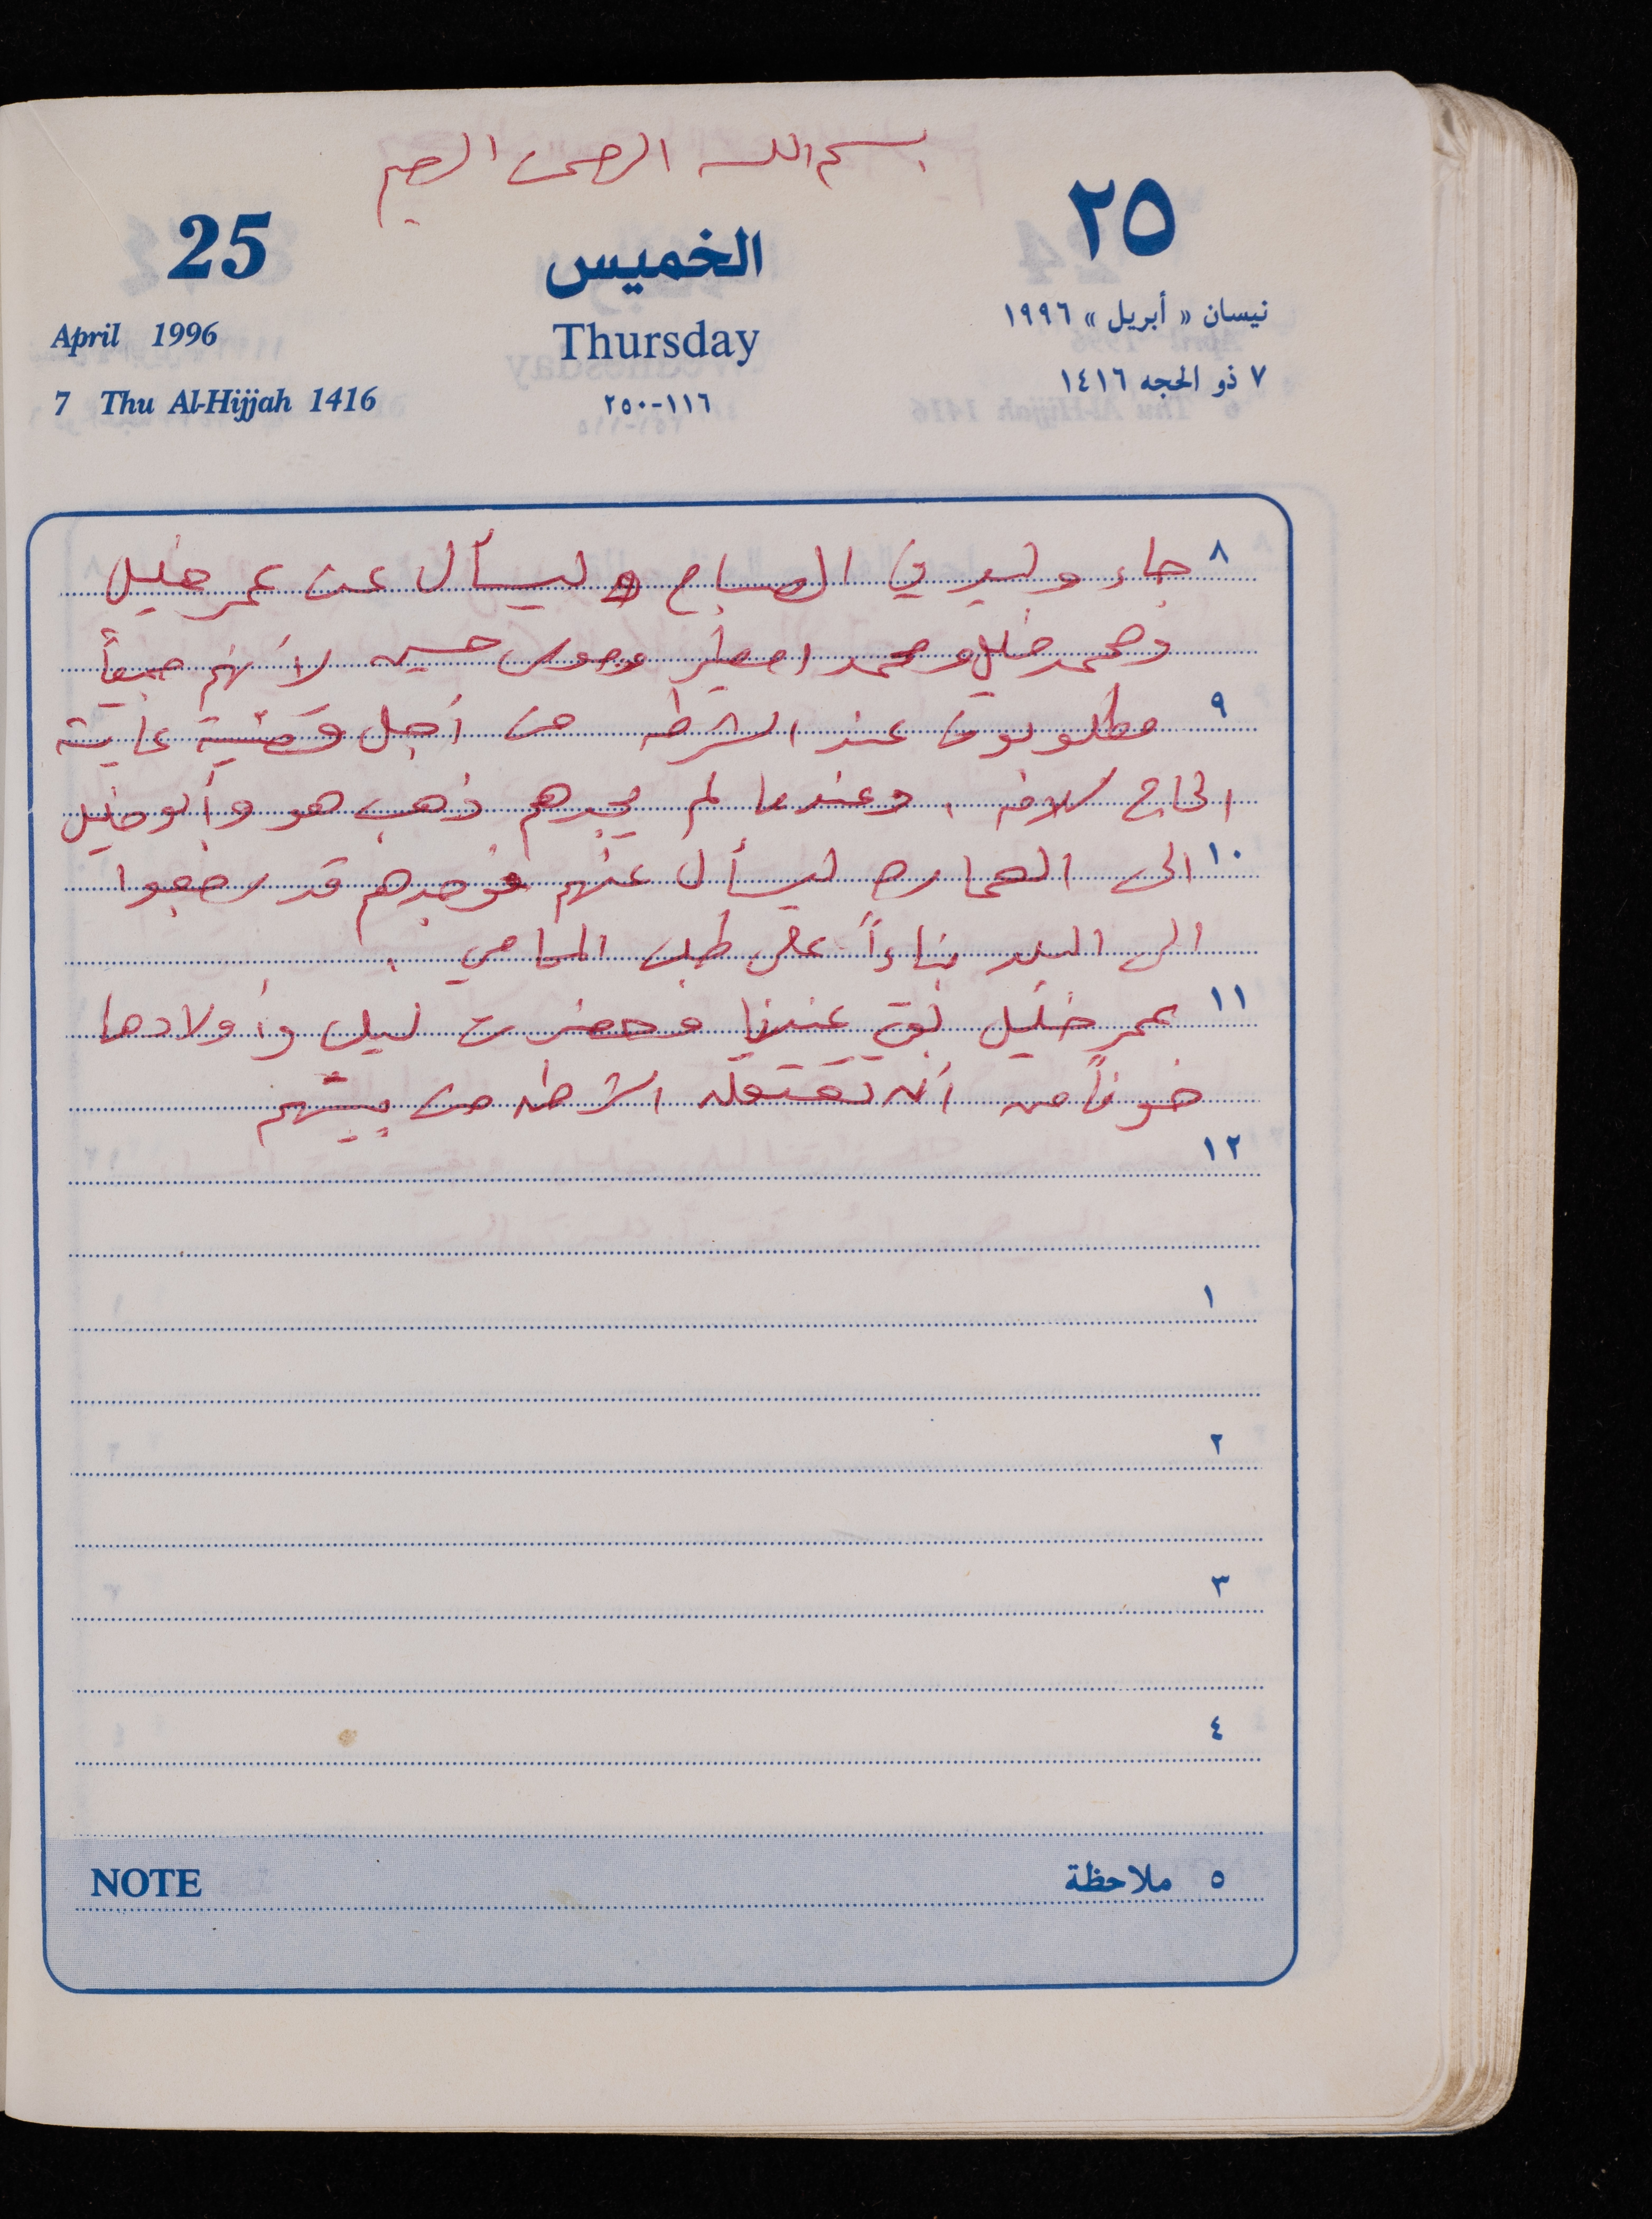 بسم الله الرحمن الرحيم
25
الخميس
٢٥
April 1996
Thursday
نيسان « أبريل » ١٩٩٦
7 Thu Al-Hijjah 1416
١١٦-٢٥٠
٧ ذو الحجه ١٤١٦
٨ جاء وليد في الصباح ليسأل عن عمر خليل
ومحمد خليل ومحمد وموسى حسين لانهم جميعاً
٩ مطلوبون عند الشرطه من أجل قضية عايشة
الحاج سلامه . وعندما لم يجدهم ذهب هو وأبو خليل
١٠ الى العماره ليسأل عنهم فوجدهم قد رجعوا
الى البلد بناءاً على طلب المحامي .
١١ عمر خليل بقي عندنا وحضرت ليلى وأولادها
خوفاً من أن تعتقله الشرطه من بيتهم
١٢
١
٢
٣
٤
NOTE
٥ ملاحظة